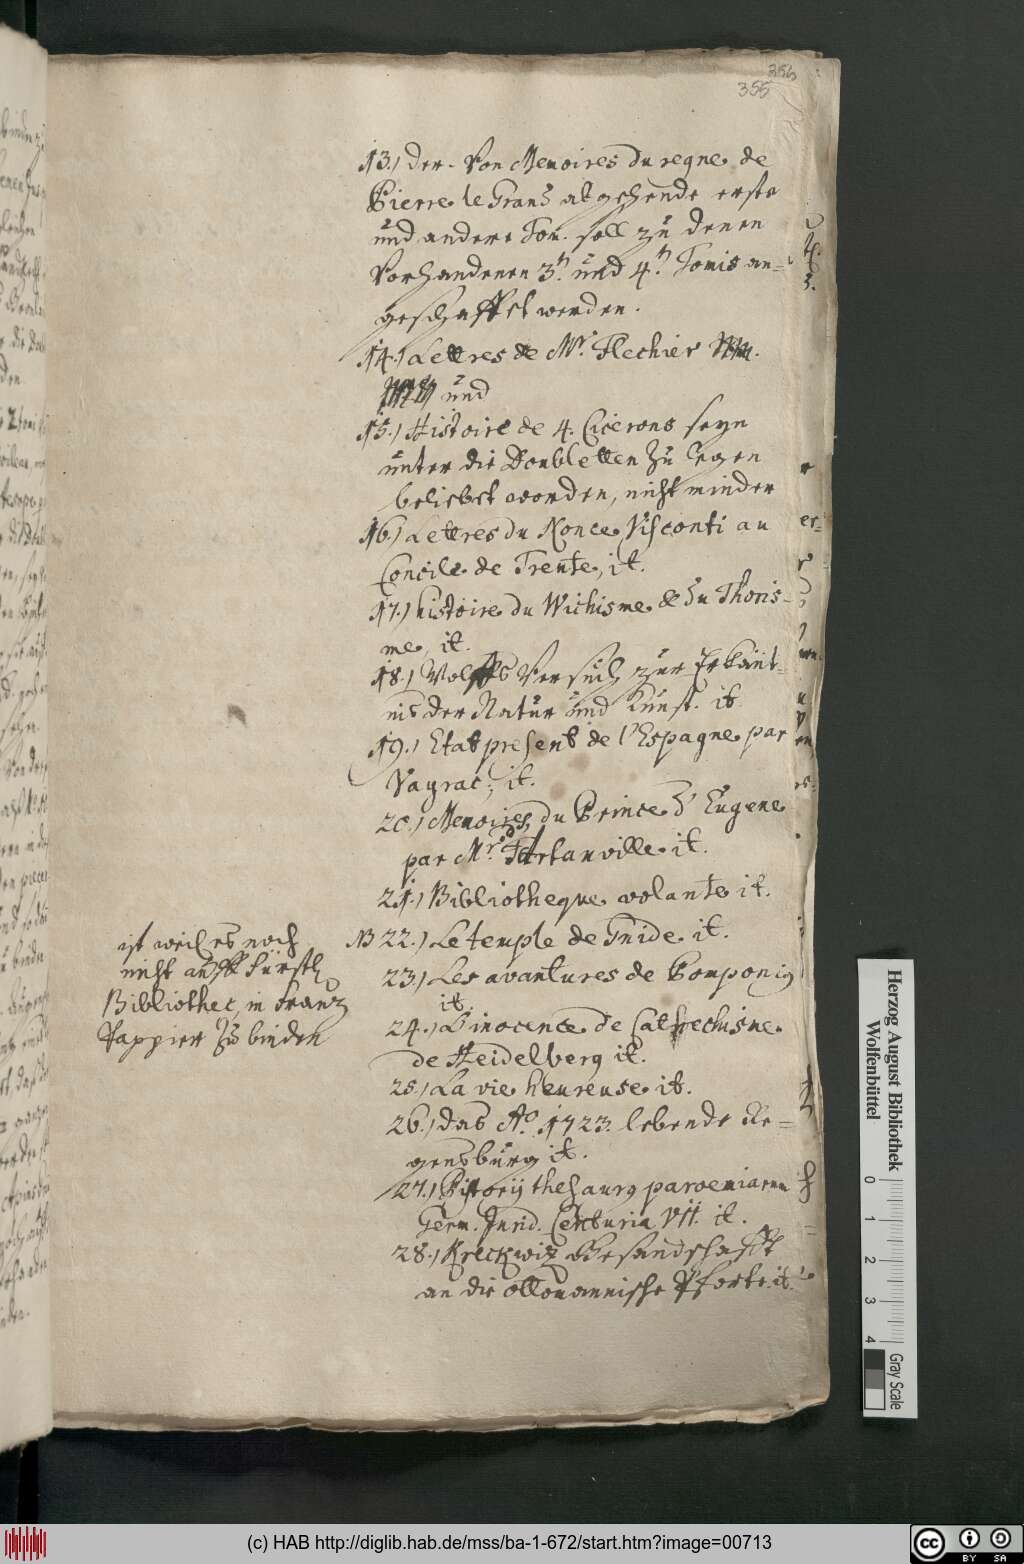 356
355
13.) der. Von Memoires du regne de
Pierre le Grand abgehende erste
und andere Tom. soll zu denen
Vorhandenen 3.n und 4.n Tomis an-
geschafft werden.
14.) Lettres de Mr. Flechier
und
15.) Histoire de 4. Cicerons seyn
unter die Doubletten zu legen
beliebet worden, nicht minder
16.) Lettres du Nonce Visconti au
Concile de Trente, it.
17.) histoire du Wichisme & du Thoris-
me, it.
18.) Wolffs Versuch zur Erkänt-
nis der Natur und Kunst. it
19.) Etat present de l'Espagne par
Vayrac, it.
20.) Memoires du Prince d'Eugene
par Mr. d'Artanville it.
21.) Bibliotheque volante it.
NB 22.) Le temple de Gnide it.
23.) Les avantures de Pomponius
it.
24.) L'inocence de Cathechisme
de Heidelberg it.
25.) La vie heureuse it.
26.) das Ao. 1723. lebende Re-
gensburg it.
27.) Pistorij thesaurg paroemiarum
Germ. Jurid. Centuria VII. it.
28.) Kreckwiz Gesandschafft
an die ottomannische Pforte it.
ist weil es noch
nicht auff Fürstl.
Bibliothec, in Franz
Pappier zu binden
Herzog August Bibliothek
Wolfenbüttel
0 1 2 3 4
Gray Scale
(c) HAB http://diglib.hab.de/mss/ba-1-672/start.htm?image=00713
CC BY SA